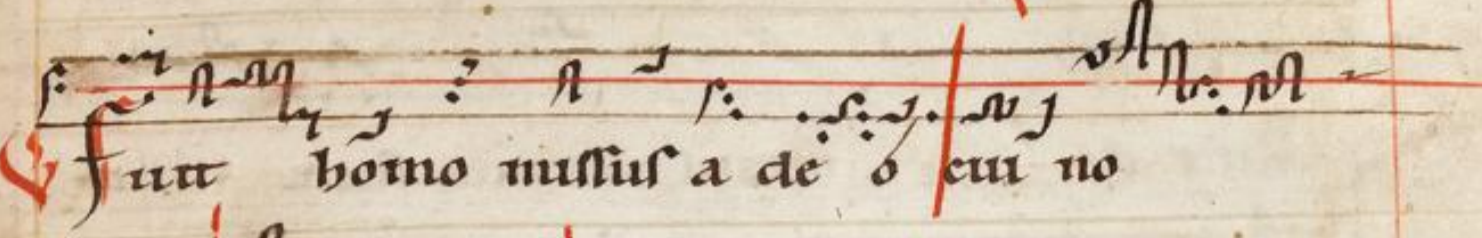 ℣ Fuit homo missus a deo cui no